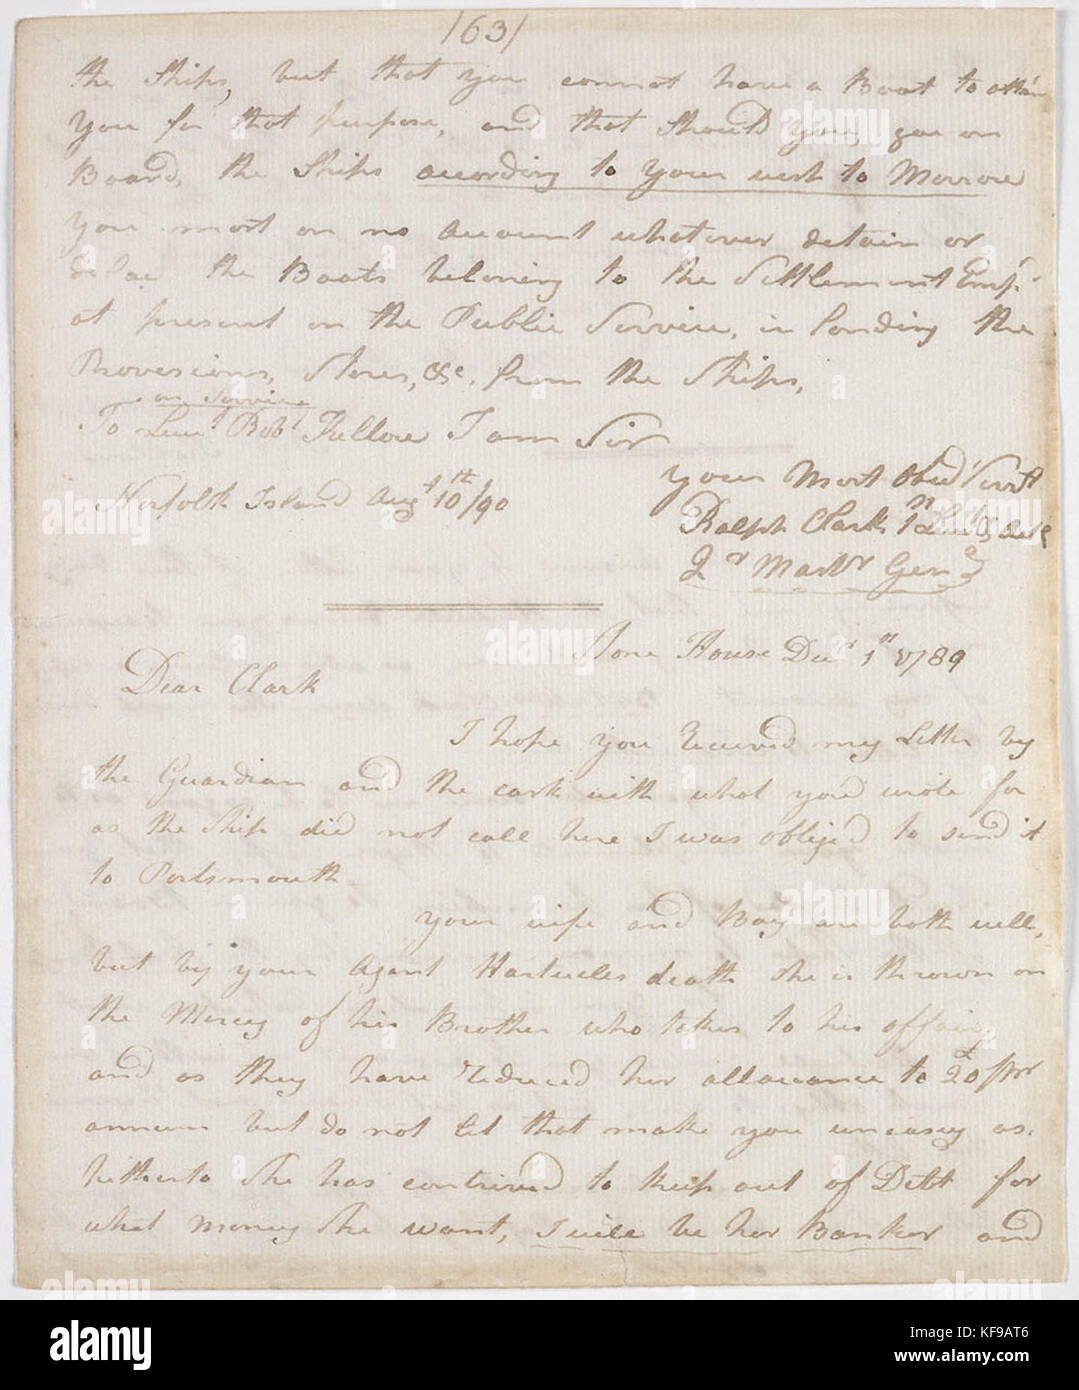 /63/
the Ships, but that you cannot have a Boat to
You for that purpose, and that should you goe on
Board, the Ships according to your wish to Morrow
you most on no account whatover detain or
the Boats beloning to the Settlement Emp.d
at present on the Public Service, in landing the
Provesions, Stores, &c. from the Ships,
on Service
To Lieu.t Rob.t Kellow I am Sir
your Most Obed Servt
Norfolk Island Aug.t 10th/90
Ralph Clark 1st Lieut &
Qr Mastr Gen.
Stone House Dec.r 1st 1789
Dear Clark
I hope you Received my Letter by
the Guardian and the cask with what you'd wrote for
as the Ship did not call here I was oblige'd to send it
to Portsmouth
your wife and Boy are both well,
but by your Agent Hartwells death she is thrown on
the Mercy of his Brother who takes to his affairs
and as they have reduced her allowance to £20 pr
annum but do not let that make you uneasy as
hitherto She has contrived to keep out of Debt for
what money She want, I will be her Banker and
alamy
KF9AT6
www.alamy.com